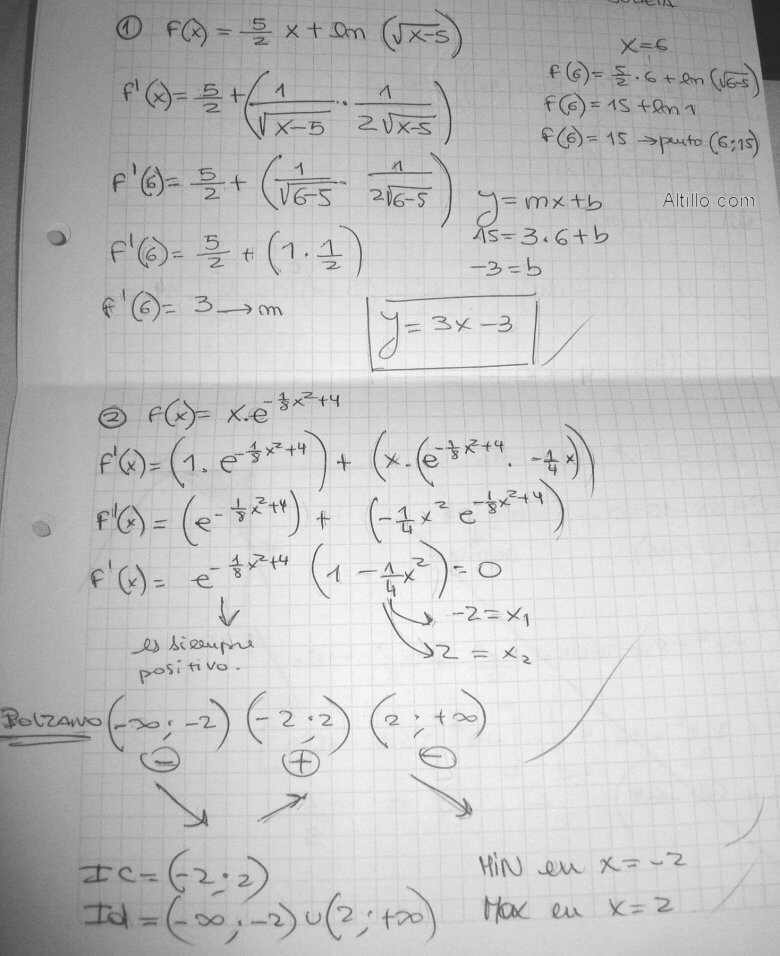 ① f(x) = 5/2 x + ln (√x-5)
f'(x) = 5/2 + (1/√x-5 · 1/2√x-5)
f'(6) = 5/2 + (1/√6-5 · 1/2√6-5)
f'(6) = 5/2 + (1 · 1/2)
f'(6) = 3 → m
x=6
f(6) = 5/2 · 6 + ln (√6-5)
f(6) = 15 + ln 1
f(6) = 15 → punto (6;15)
y = mx+b
15 = 3·6+b
-3 = b
y = 3x-3
Altillo.com
② f(x) = x·e^(-1/8x²+4)
f'(x) = (1· e^(-1/8x²+4)) + (x·(e^(-1/8x²+4) · -1/4x))
f'(x) = (e^(-1/8x²+4)) + (-1/4x² e^(-1/8x²+4))
f'(x) = e^(-1/8x²+4) (1 - 1/4x²) = 0
es siempre
positivo.
-2 = x₁
2 = x₂
BOLZANO (-∞;-2) (-2;2) (2;+∞)
⊖ ⊕ ⊖
Ic = (-2;2)
Id = (-∞;-2) ∪ (2;+∞)
MiN en x = -2
Max en x = 2